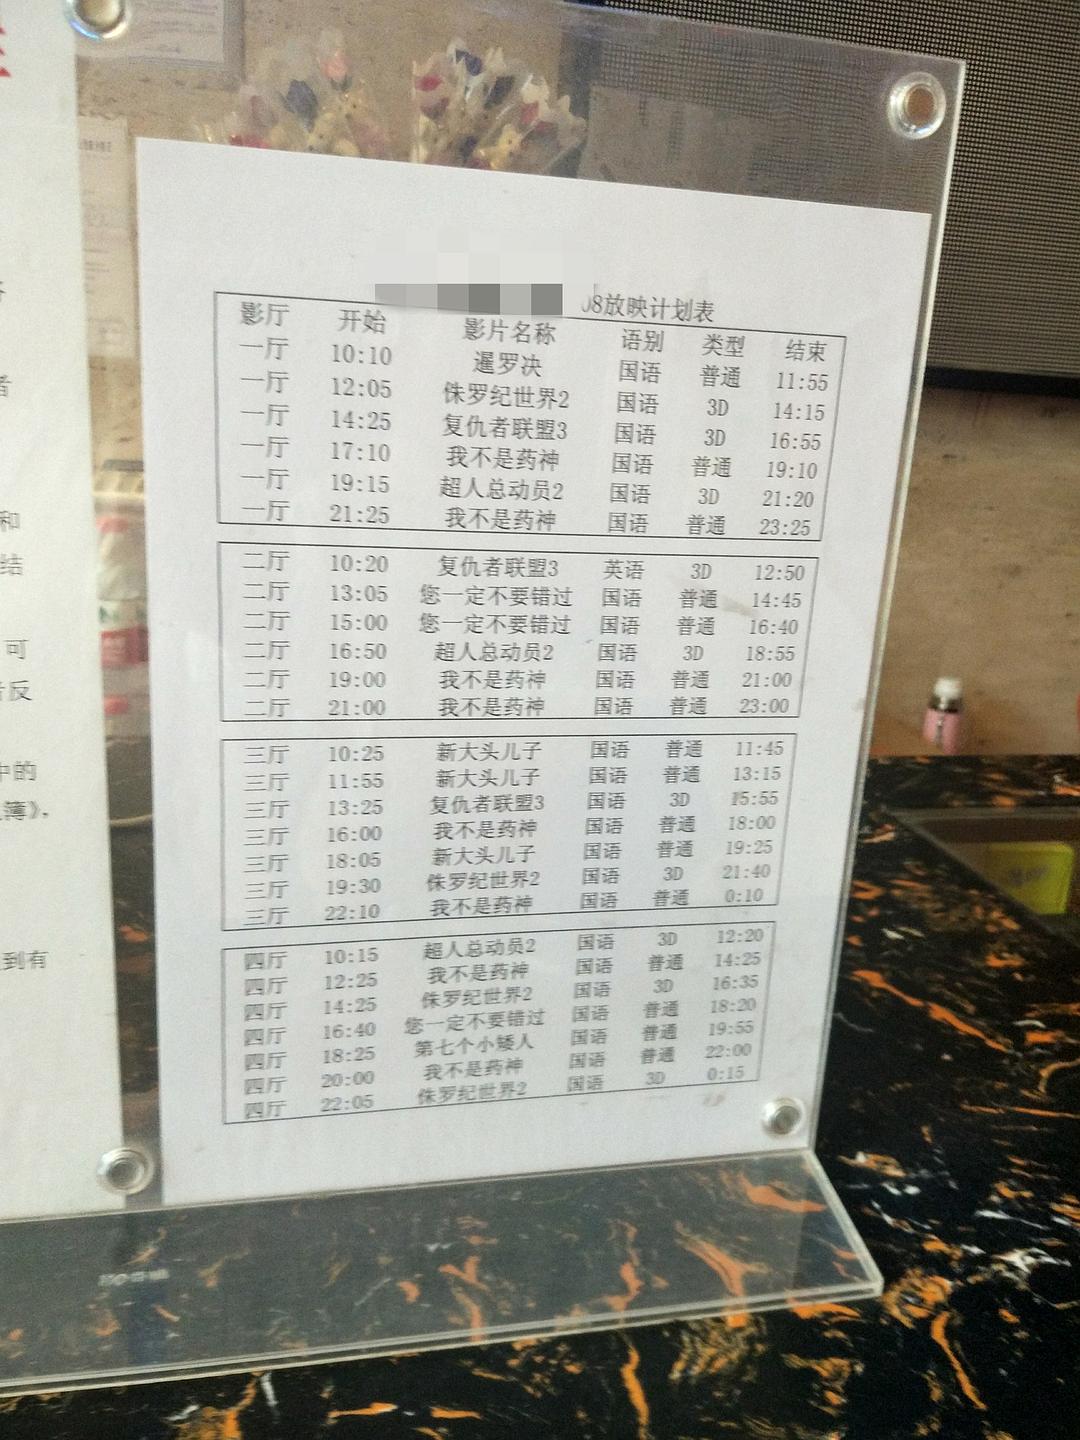 08放映计划表
影厅 开始 影片名称 语别 类型 结束
一厅 10:10 暹罗决 国语 普通 11:55
一厅 12:05 侏罗纪世界2 国语 3D 14:15
一厅 14:25 复仇者联盟3 国语 3D 16:55
一厅 17:10 我不是药神 国语 普通 19:10
一厅 19:15 超人总动员2 国语 3D 21:20
一厅 21:25 我不是药神 国语 普通 23:25
二厅 10:20 复仇者联盟3 英语 3D 12:50
二厅 13:05 您一定不要错过 国语 普通 14:45
二厅 15:00 您一定不要错过 国语 普通 16:40
二厅 16:50 超人总动员2 国语 3D 18:55
二厅 19:00 我不是药神 国语 普通 21:00
二厅 21:00 我不是药神 国语 普通 23:00
三厅 10:25 新大头儿子 国语 普通 11:45
三厅 11:55 新大头儿子 国语 普通 13:15
三厅 13:25 复仇者联盟3 国语 3D 15:55
三厅 16:00 我不是药神 国语 普通 18:00
三厅 18:05 新大头儿子 国语 普通 19:25
三厅 19:30 侏罗纪世界2 国语 3D 21:40
三厅 22:10 我不是药神 国语 普通 0:10
四厅 10:15 超人总动员2 国语 3D 12:20
四厅 12:25 我不是药神 国语 普通 14:25
四厅 14:25 侏罗纪世界2 国语 3D 16:35
四厅 16:40 您一定不要错过 国语 普通 18:20
四厅 18:25 第七个小矮人 国语 普通 19:55
四厅 20:00 我不是药神 国语 普通 22:00
四厅 22:05 侏罗纪世界2 国语 3D 0:15
者
和
结
可
反
中的
簿》，
到有